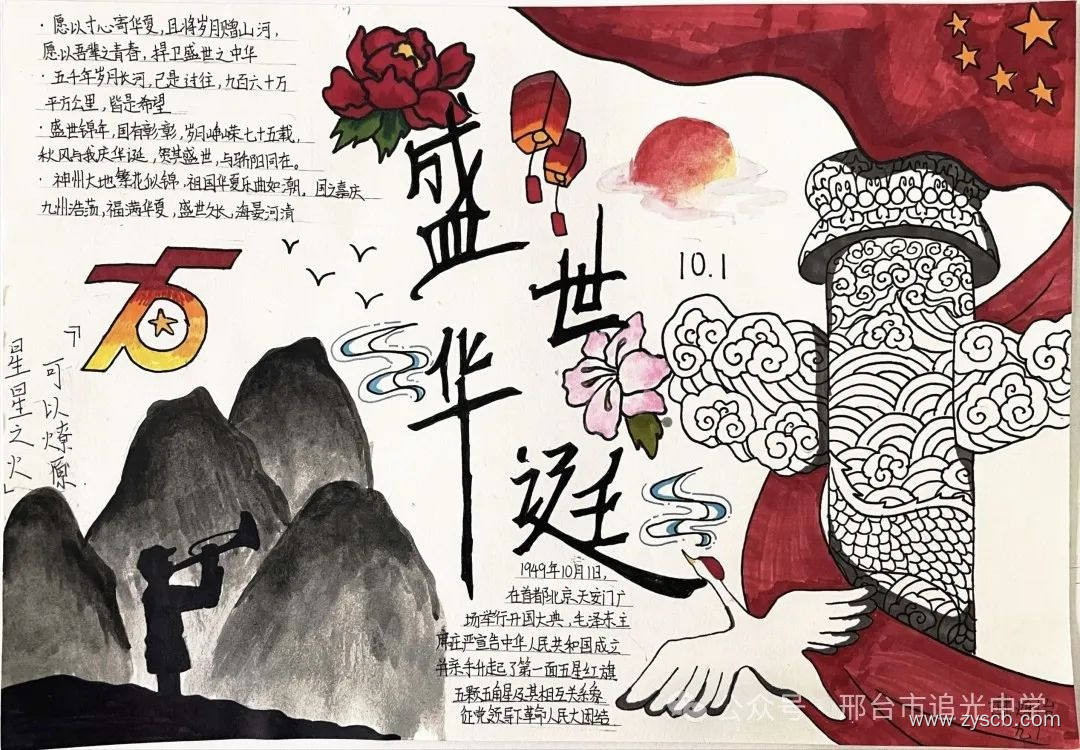 · 愿以寸心寄华夏,且将岁月赠山河,
愿以吾辈之青春,捍卫盛世之中华
· 五千年岁月长河,已是过往,九百六十万
平方公里,皆是希望
· 盛世锦年,国有彰彰,岁月峥嵘七十五载,
秋风与我庆华诞,贺其盛世,与骄阳同在。
· 神州大地繁花似锦,祖国华夏乐曲如潮。国之嘉庆
九州浩荡,福满华夏,盛世久长,海晏河清
75
「星星之火
可以燎原」
盛世
华诞
10.1
1949年10月1日,
在首都北京天安门广
场举行开国大典,毛泽东主
席庄严宣告中华人民共和国成立
并亲手升起了第一面五星红旗
五颗五角星及其相互关系象
征党领导下革命人民大团结
公众号 · 邢台市追光中学
www.zyscb.com